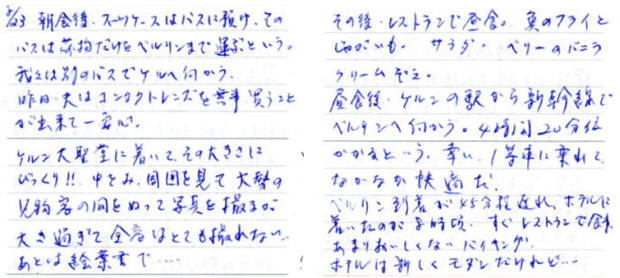 7/23 朝食後、スーツケースはバスに預け、その
バスは荷物だけをベルリンまで運ぶという。
我々は別のバスでケルンへ向かう。
昨日、夫はコンタクトレンズを無事買うこと
が出来て一安心。
ケルン大聖堂に着いて、その大きさに
びっくり!! 中をみ、周囲を見て大勢の
見物客の間をぬって写真を撮るが
大き過ぎて全容はとても撮れない。
あとは絵葉書で‥‥
その後、レストランで昼食。魚のフライと
じゃがいも、サラダ、ベリーのバニラ
クリームぞえ。
昼食後、ケルンの駅から新幹線で
ベルリンへ向かう。4時間20分位
かかるという、幸い、1等車に乗れて、
なかなか快適だ。
ベルリン到着が45分程遅れ、ホテルに
着いたのが8時頃、すぐレストランで食事、
あまりおいしくないバイキング。
ホテルは新しくモダンだけれど‥‥